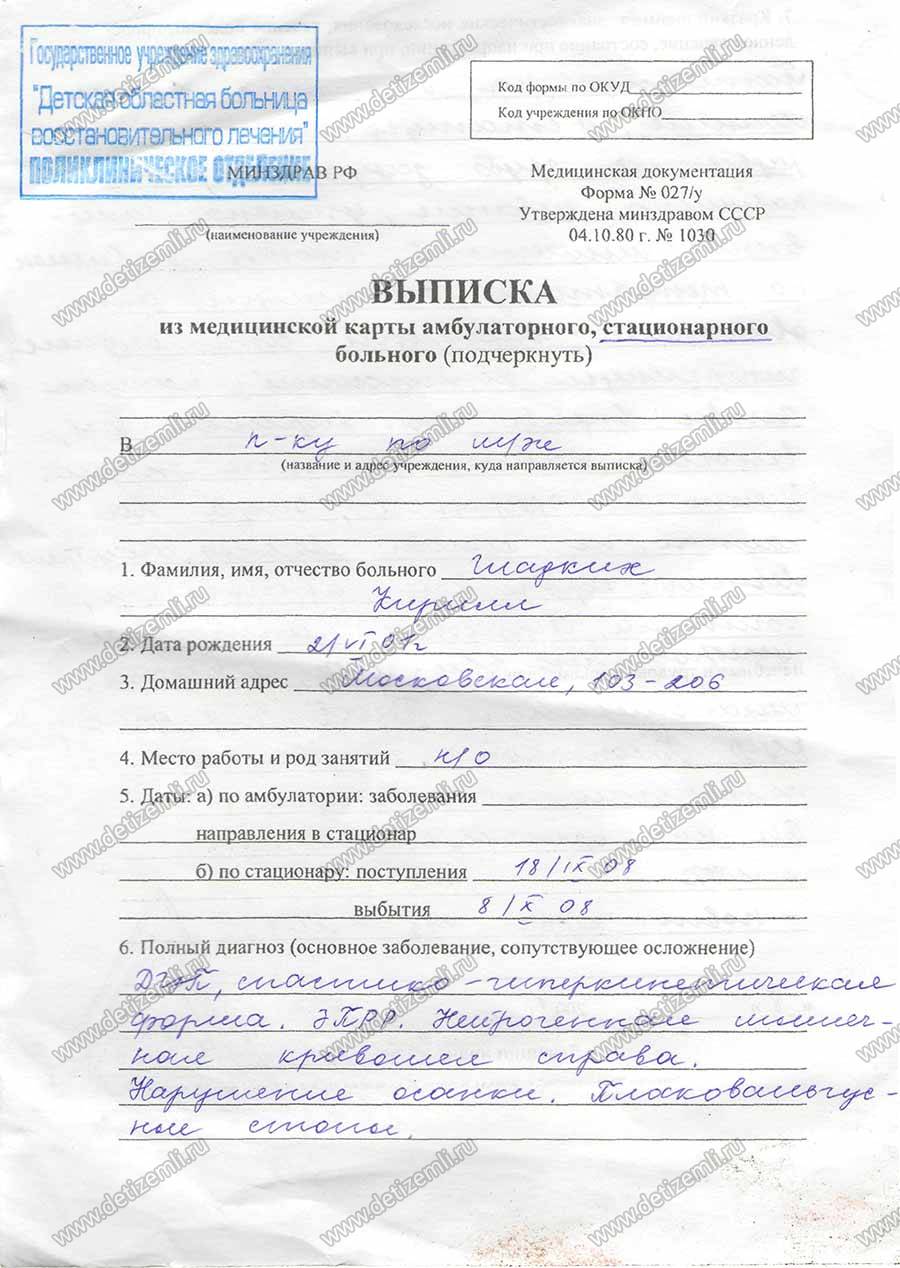 Государственное учреждение здравоохранения
"Детская областная больница
восстановительного лечения"
ПОЛИКЛИНИЧЕСКОЕ ОТДЕЛЕНИЕ
Код формы по ОКУД
Код учреждения по ОКПО
МИНЗДРАВ РФ
(наименование учреждения)
Медицинская документация
Форма № 027/у
Утверждена минздравом СССР
04.10.80 г. № 1030
ВЫПИСКА
из медицинской карты амбулаторного, стационарного
больного (подчеркнуть)
В п-ку по м/ж
(название и адрес учреждения, куда направляется выписка)
1. Фамилия, имя, отчество больного Гладких
Кирилл
2. Дата рождения 21 VI 01г
3. Домашний адрес Московская, 103-206
4. Место работы и род занятий н/о
5. Даты: а) по амбулатории: заболевания
направления в стационар
б) по стационару: поступления 18/IX 08
выбытия 8/X 08
6. Полный диагноз (основное заболевание, сопутствующее осложнение)
ДЦП, спастико-гиперкинетическая
форма. ЗПРР. Нейрогенная мышеч-
ная кривошея справа.
Нарушение осанки. Плосковальгус-
ные стопы.
www.detizemli.ru